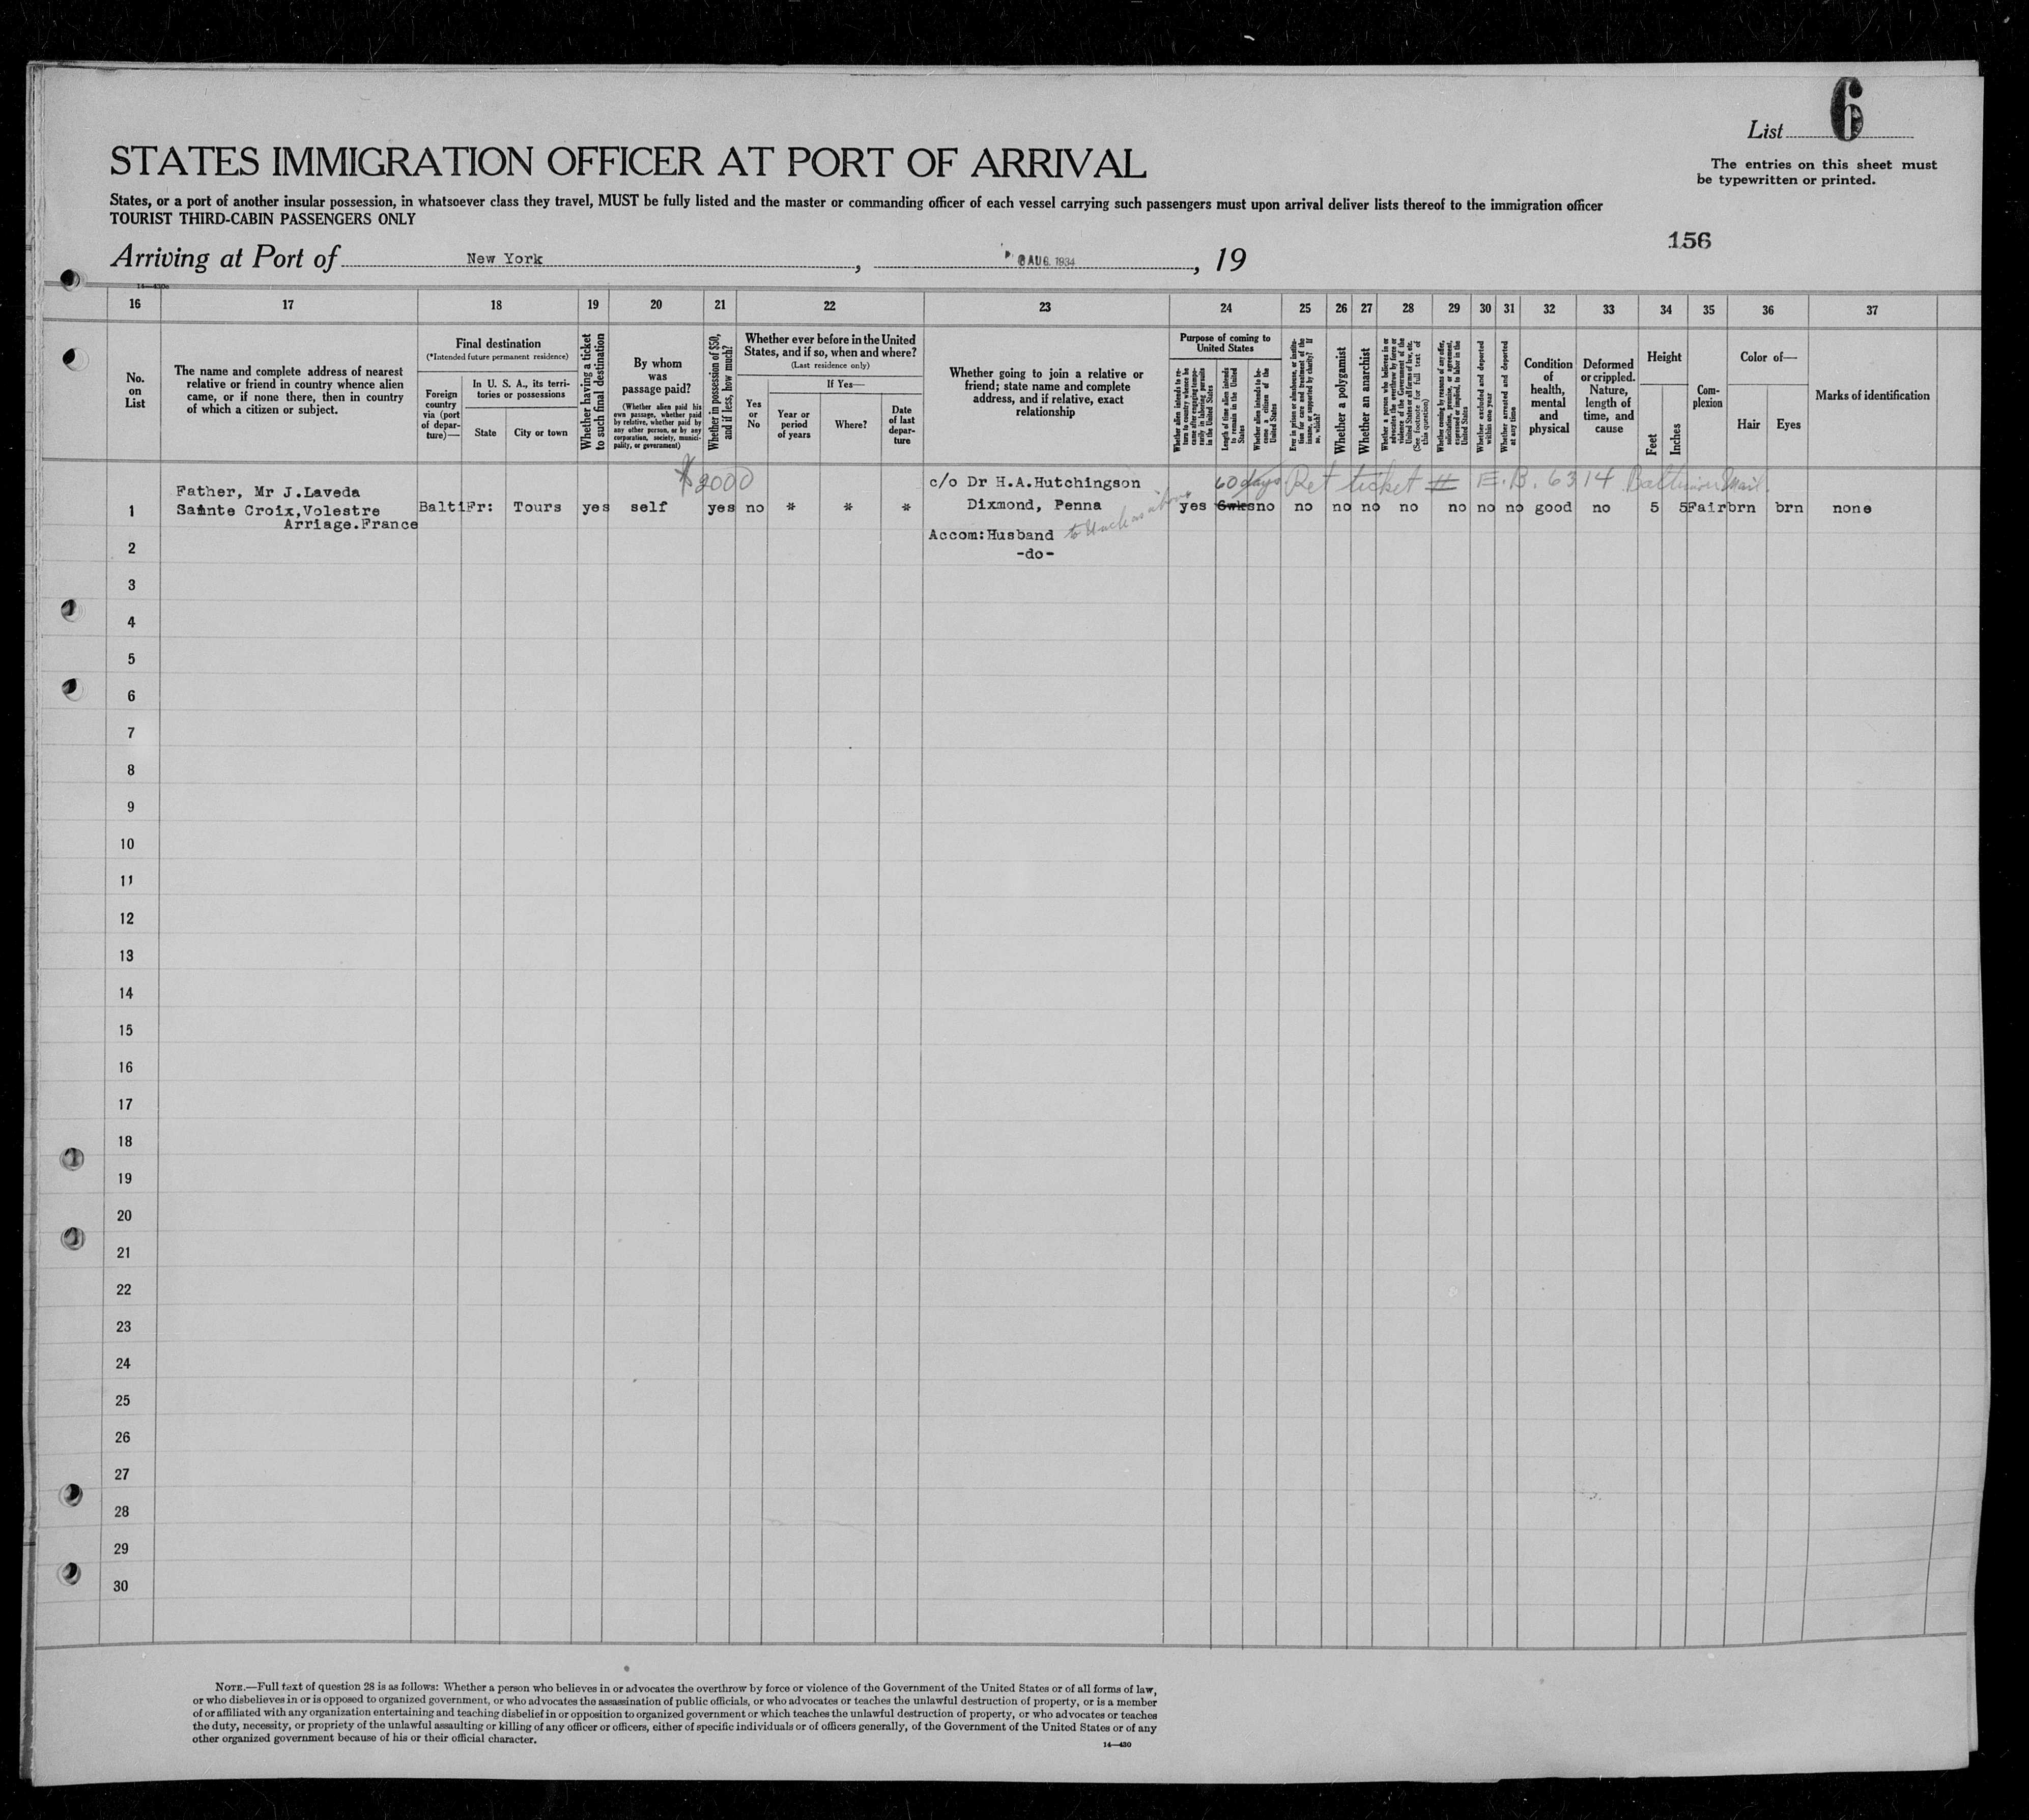 List 6
The entries on this sheet must
be typewritten or printed.
STATES IMMIGRATION OFFICER AT PORT OF ARRIVAL
States, or a port of another insular possession, in whatsoever class they travel, MUST be fully listed and the master or commanding officer of each vessel carrying such passengers must upon arrival deliver lists thereof to the immigration officer
TOURIST THIRD-CABIN PASSENGERS ONLY
156
Arriving at Port of New York, AUG. 1934, 19
14—430c
16 17 18 19 20 21 22 23 24 25 26 27 28 29 30 31 32 33 34 35 36 37
No.
on
List
The name and complete address of nearest
relative or friend in country whence alien
came, or if none there, then in country
of which a citizen or subject.
Final destination
(*Intended future permanent residence)
Foreign
country
via (port
of depar-
ture)—
In U. S. A., its terri-
tories or possessions
State
City or town
Whether having a ticket
to such final destination
By whom
was
passage paid?
(Whether alien paid his
own passage, whether paid
by relative, whether paid by
any other person, or by any
corporation, society, munici-
pality, or government)
Whether in possession of $50,
and if less, how much?
Whether ever before in the United
States, and if so, when and where?
(Last residence only)
Yes
or
No
If Yes—
Year or
period
of years
Where?
Date
of last
depar-
ture
Whether going to join a relative or
friend; state name and complete
address, and if relative, exact
relationship
Purpose of coming to
United States
Whether alien intends to re-
turn to country whence he
came after engaging tempo-
rarily in laboring pursuits
in the United States
Length of time alien intends
to remain in the United
States
Whether alien intends to be-
come a citizen of the
United States
Ever in prison or almshouse, or institu-
tion for care and treatment of the
insane, or supported by charity? If
so, which?
Whether a polygamist
Whether an anarchist
Whether a person who believes in or
advocates the overthrow by force or
violence of the Government of the
United States or all forms of law, etc.
(See footnote for full text of
this question)
Whether coming by reason of any offer,
solicitation, promise, or agreement,
expressed or implied, to labor in the
United States
Whether excluded and deported
within one year
Whether arrested and deported
at any time
Condition
of
health,
mental
and
physical
Deformed
or crippled.
Nature,
length of
time, and
cause
Height
Feet
Inches
Com-
plexion
Color of—
Hair
Eyes
Marks of identification
$2000
c/o Dr H.A.Hutchingson 60 days Ret ticket # E.B. 6314 Baltimore Mail.
Father, Mr J.Laveda
1 Sainte Croix,Volestre BaltiFr: Tours yes self yes no * * * Dixmond, Penna yes 6wks no no no no no no no no good no 5 5 Fair brn brn none
Arriage.France
Accom:Husband
2 -do-
3
4
5
6
7
8
9
10
11
12
13
14
15
16
17
18
19
20
21
22
23
24
25
26
27
28
29
30
NOTE.—Full text of question 28 is as follows: Whether a person who believes in or advocates the overthrow by force or violence of the Government of the United States or of all forms of law,
or who disbelieves in or is opposed to organized government, or who advocates the assassination of public officials, or who advocates or teaches the unlawful destruction of property, or is a member
of or affiliated with any organization entertaining and teaching disbelief in or opposition to organized government or which teaches the unlawful destruction of property, or who advocates or teaches
the duty, necessity, or propriety of the unlawful assaulting or killing of any officer or officers, either of specific individuals or of officers generally, of the Government of the United States or of any
other organized government because of his or their official character.
14—430